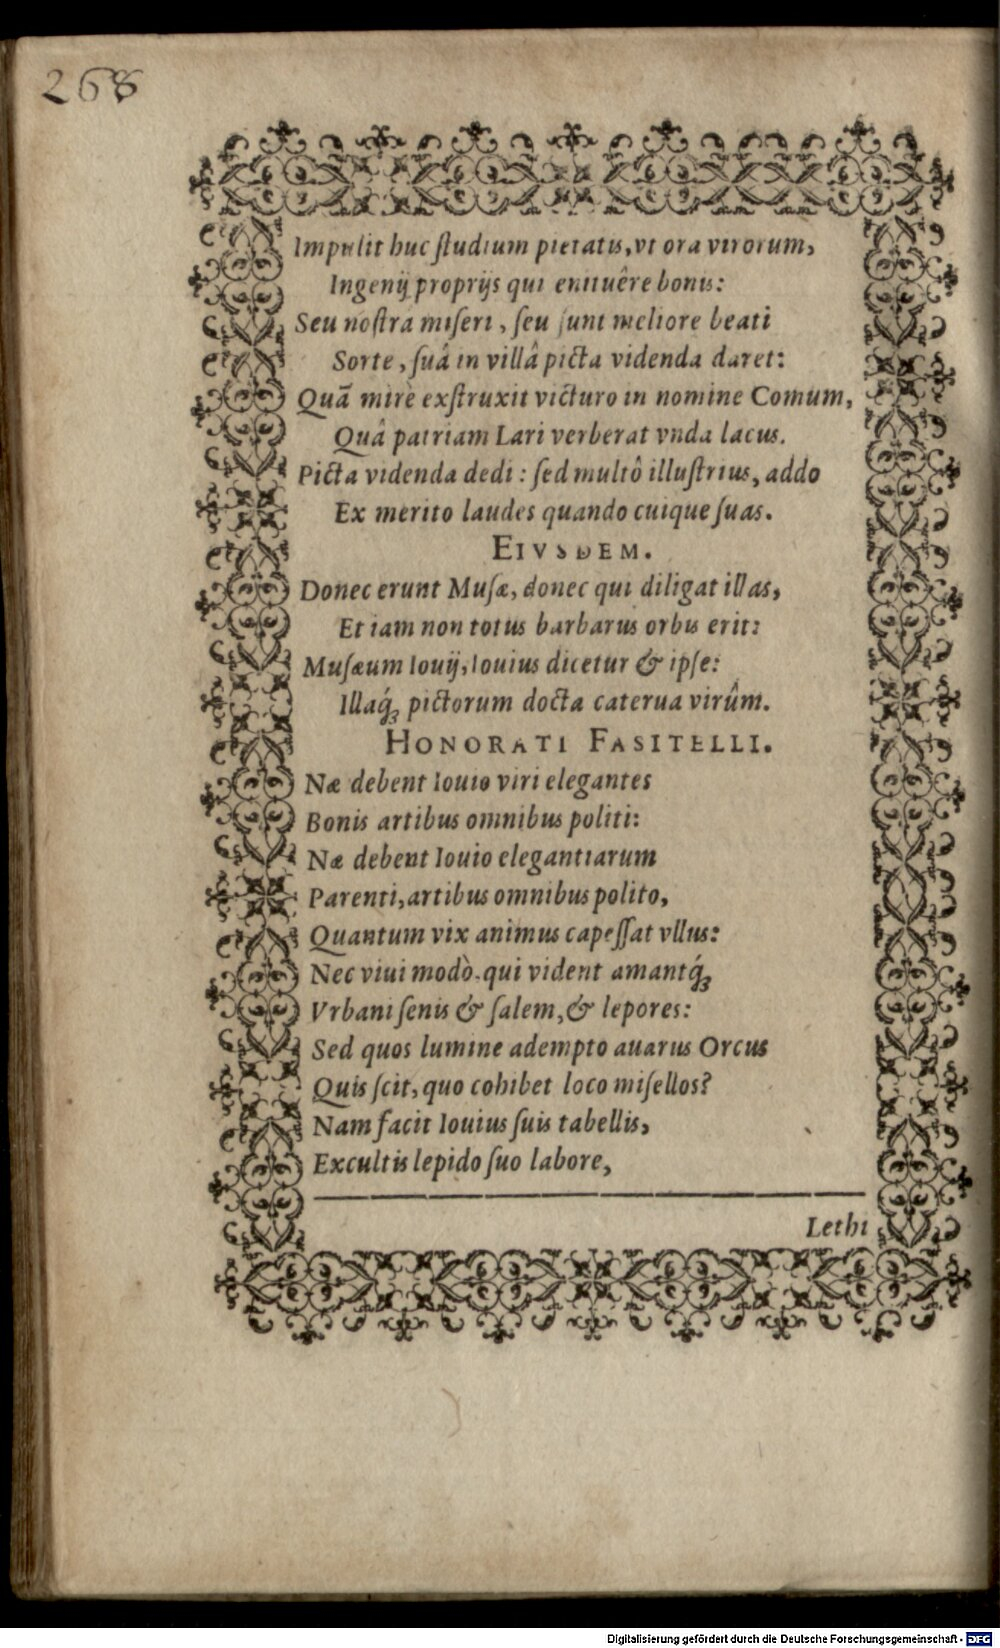 268
Impulit huc ſtudium pietatis, vt ora virorum,
Ingenij proprijs qui enituêre bonis:
Seu noſtra miſeri, ſeu ſunt meliore beati
Sorte, ſuâ in villâ picta videnda daret:
Quã mirè exſtruxit victuro in nomine Comum,
Quâ patriam Lari verberat vnda lacus.
Picta videnda dedi: ſed multô illuſtrius, addo
Ex merito laudes quando cuique ſuas.
EIVSDEM.
Donec erunt Muſæ, donec qui diligat illas,
Et iam non totus barbarus orbis erit:
Muſæum Iouij, Iouius dicetur & ipſe:
Illaq́ꝫ pictorum docta caterua virûm.
HONORATI FASITELLI.
Næ debent Iouio viri elegantes
Bonis artibus omnibus politi:
Næ debent Iouio elegantiarum
Parenti, artibus omnibus polito,
Quantum vix animus capeſſat vllus:
Nec viui modò, qui vident amantq́ꝫ
Vrbani ſenis & ſalem, & lepores:
Sed quos lumine adempto auarus Orcus
Quis ſcit, quo cohibet loco miſellos?
Nam facit Iouius ſuis tabellis,
Excultis lepido ſuo labore,
Lethi
Digitalisierung gefördert durch die Deutsche Forschungsgemeinschaft - DFG